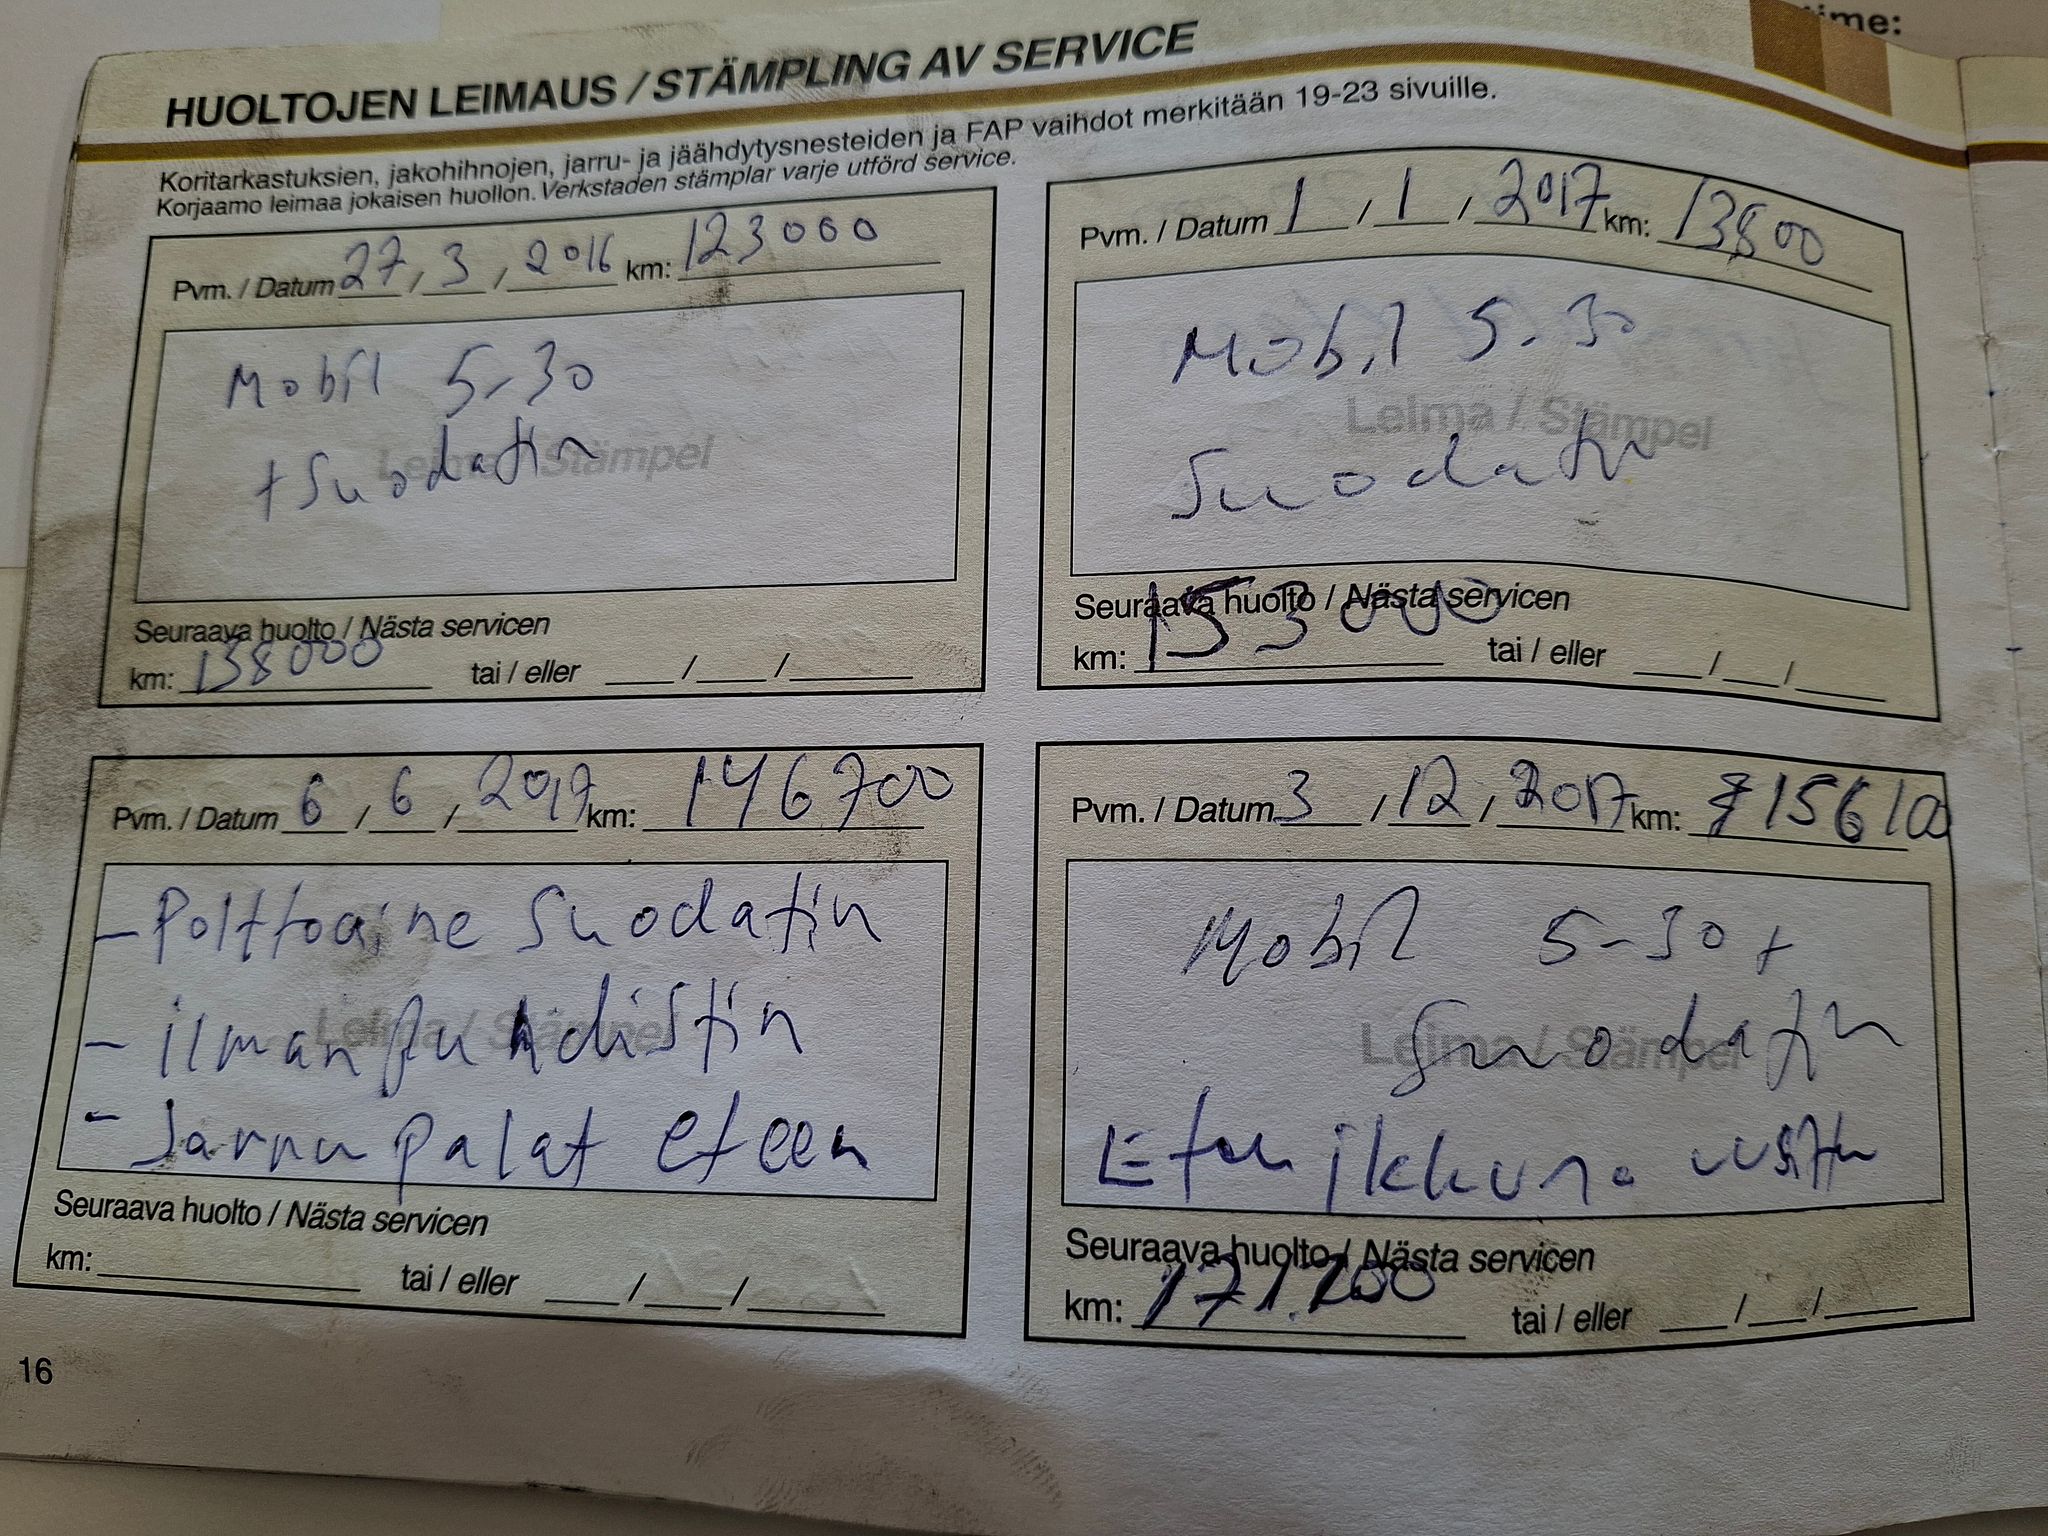 time:
HUOLTOJEN LEIMAUS / STÄMPLING AV SERVICE
Koritarkastuksien, jakohihnojen, jarru- ja jäähdytysnesteiden ja FAP vaihdot merkitään 19-23 sivuille.
Korjaamo leimaa jokaisen huollon. Verkstaden stämplar varje utförd service.
Pvm. / Datum 27 , 3 , 2016 km: 123000
Mobil 5-30
+ Suodatin
Leima / Stämpel
Seuraava huolto / Nästa servicen
km: 138000 tai / eller / /
Pvm. / Datum 1 , 1 , 2017 km: 13800
Mobil 5-30
Leima / Stämpel
Suodatin
Seuraava huolto / Nästa servicen
km: 153000 tai / eller / /
Pvm. / Datum 6 , 6 , 2017 km: 146700
- Polttoaine Suodatin
- ilman puhdistin
Leima / Stämpel
- Jarru palat eteen
Seuraava huolto / Nästa servicen
km: tai / eller / /
Pvm. / Datum 3 , 12 , 2017 km: 156100
Mobil 5-30 +
Suodatin
Leima / Stämpel
Etu ikkuna
Seuraava huolto / Nästa servicen
km: 171.200 tai / eller / /
16